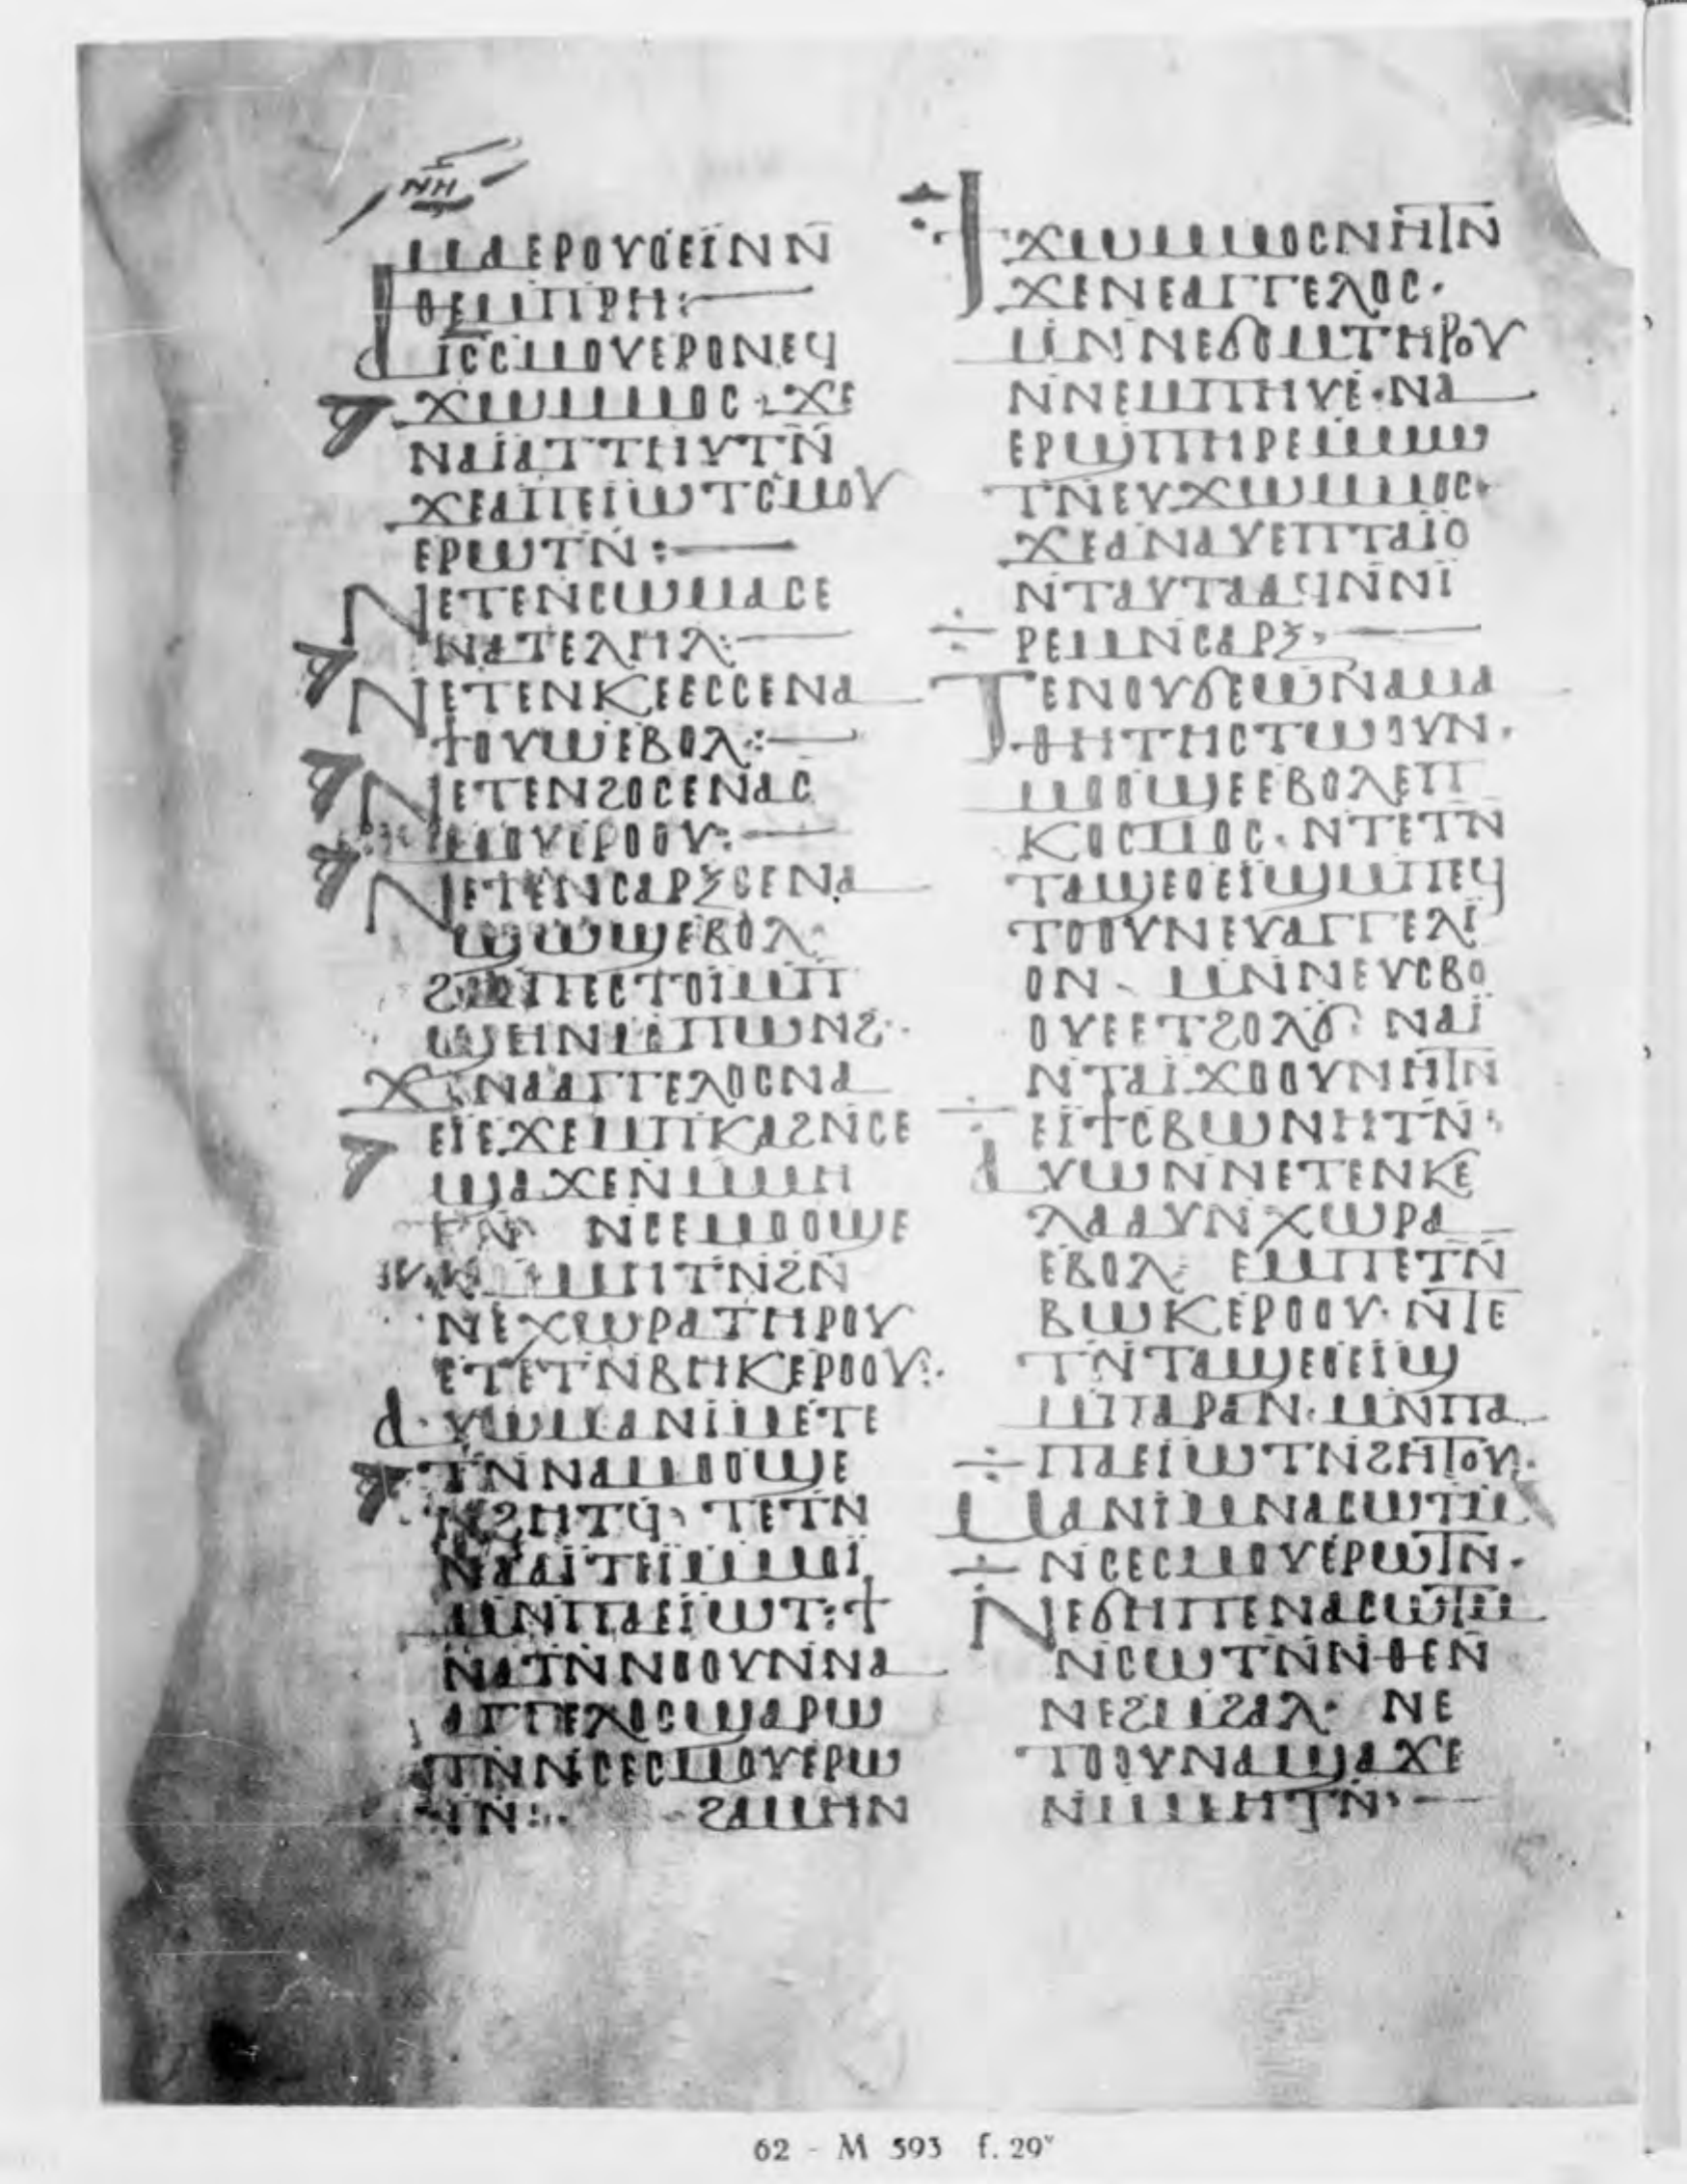 ⲛⲏ
ⲙⲁⲉⲣⲟⲩⲟⲉⲓⲛⲛ̄
ⲑⲉⲙⲡⲣⲏ:
ⲁⲓ̅ⲥ̅ⲥⲙⲟⲩⲉⲣⲟⲛⲉϥ
ϫⲱⲙⲙⲟⲥ· ϫⲉ
ⲛⲁⲓⲁⲧⲧⲏⲩⲧⲛ̄
ϫⲉⲁⲡⲉⲓⲱⲧⲥⲙⲟⲩ
ⲉⲣⲱⲧⲛ̄:
ⲛⲉⲧⲉⲛⲥⲱⲙⲁⲥⲉ
ⲛⲁⲧⲉⲗⲏⲗ:
ⲛⲉⲧⲉⲛⲕⲉⲉⲥⲥⲉⲛⲁ
ϯⲟⲩⲱⲉⲃⲟⲗ:
ⲛⲉⲧⲉⲛϩⲟⲥⲉⲛⲁⲥ
ⲙⲟⲩⲉⲣⲟⲟⲩ:
ⲛⲉⲧⲉⲛⲥⲁⲣⲝⲥⲉⲛⲁ
ϣⲱⲱϣⲉⲃⲟⲗ
ϩⲙⲡⲉⲥⲧⲟⲓⲙⲡ
ϣⲏⲛⲙⲡⲱⲛϩ·
ϫⲓⲛⲁⲁⲅⲅⲉⲗⲟⲥⲛⲁ
ⲉⲓⲉϫⲉⲙⲡⲕⲁϩⲛⲥⲉ
ϣⲁϫⲉⲛⲙⲙⲏ
ⲧⲛ̄ ⲛⲥⲉⲙⲟⲟϣⲉ
ⲛⲙⲙⲏⲧⲛϩⲛ̄
ⲛⲉⲭⲱⲣⲁⲧⲏⲣⲟⲩ
ⲉⲧⲉⲧⲛⲃⲏⲕⲉⲣⲟⲟⲩ:·
ⲁⲩⲱⲙⲁⲛⲓⲙⲉⲧⲉ
ⲧⲛⲛⲁⲙⲟⲟϣⲉ
ⲛϩⲏⲧϥ· ⲧⲉⲧⲛ
ⲛⲁⲁⲓⲧⲏⲙⲙⲟⲓ
ⲙⲛⲡⲁⲉⲓⲱⲧ: ϯ
ⲛⲁⲧⲛⲛⲟⲟⲩⲛⲛⲁ
ⲁⲅⲅⲉⲗⲟⲥϣⲁⲣⲱ
ⲧⲛⲛⲥⲉⲥⲙⲟⲩⲉⲣⲱ
ⲧⲛ:· ϩⲁⲙⲏⲛ
ϯϫⲱⲙⲙⲟⲥⲛⲏⲧⲛ̄
ϫⲉⲛⲉⲁⲅⲅⲉⲗⲟⲥ·
ⲙⲛⲛⲉϭⲟⲙⲧⲏⲣⲟⲩ
ⲛⲛⲉⲙⲡⲏⲩⲉ·ⲛⲁ
ⲉⲣϣⲡⲏⲣⲉⲙⲙⲱ
ⲧⲛⲉⲩϫⲱⲙⲙⲟⲥ·
ϫⲉⲁⲛⲁⲩⲉⲡⲧⲁⲓⲟ
ⲛⲧⲁⲩⲧⲁⲁϥⲛⲛⲓ
ⲣⲉⲙⲛⲥⲁⲣⲝ·
ⲧⲉⲛⲟⲩϭⲉⲱⲛⲁⲙⲁ
ⲑⲏⲧⲏⲥⲧⲱⲟⲩⲛ·
ⲙⲟⲟϣⲉⲉⲃⲟⲗⲉⲡ
ⲕⲟⲥⲙⲟⲥ· ⲛⲧⲉⲧⲛ
ⲧⲁϣⲉⲟⲉⲓϣⲙⲡⲉϥ
ⲧⲟⲟⲩⲛⲉⲩⲁⲅⲅⲉⲗⲓ
ⲟⲛ· ⲙⲛⲛⲉⲩⲥⲃⲟ
ⲟⲩⲉⲉⲧϩⲟⲗϭ· ⲛⲁⲓ
ⲛⲧⲁⲓϫⲟⲟⲩⲛⲏⲧⲛ
ⲉⲓϯⲥⲃⲱⲛⲏⲧⲛ̄·
ⲁⲩⲱⲛⲛⲉⲧⲉⲛⲕⲉ
ⲗⲁⲁⲩⲛⲭⲱⲣⲁ
ⲉⲃⲟⲗ· ⲉⲙⲡⲉⲧⲛ̄
ⲃⲱⲕⲉⲣⲟⲟⲩ·ⲛⲧⲉ
ⲧⲛⲧⲁϣⲉⲟⲉⲓϣ
ⲙⲡⲁⲣⲁⲛ·ⲙⲛⲡⲁ
ⲡⲁⲉⲓⲱⲧⲛϩⲏⲧⲟⲩ·
ⲙⲁⲛⲓⲙⲛⲁⲥⲱⲧⲙ
ⲛⲥⲉⲥⲙⲟⲩⲉⲣⲱⲧⲛ·
ⲛⲉϭⲏⲡⲉⲛⲁⲥⲱⲧⲙ
ⲛⲥⲱⲧⲛⲛⲑⲉⲛ̄
ⲛⲉϩⲙϩⲁⲗ· ⲛⲉ
ⲧⲟⲟⲩⲛⲁϣⲁϫⲉ
ⲛⲙⲙⲏⲧⲛ̄·
62 - M 593 f. 29ᵛ